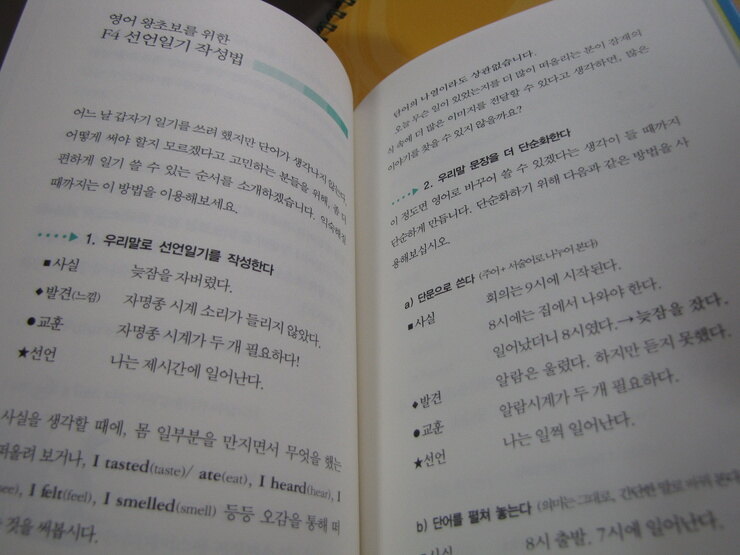 영어 왕초보를 위한
F4 선언일기 작성법
어느 날 갑자기 일기를 쓰려 했지만 단어가 생각나지 않는다,
어떻게 써야 할지 모르겠다고 고민하는 분들을 위해, 좀 더
편하게 일기 쓸 수 있는 순서를 소개하겠습니다. 익숙해질
때까지는 이 방법을 이용해보세요.
1. 우리말로 선언일기를 작성한다
■사실 늦잠을 자버렸다.
◆발견(느낌) 자명종 시계 소리가 들리지 않았다.
●교훈 자명종 시계가 두 개 필요하다!
★선언 나는 제시간에 일어난다.
사실을 생각할 때에, 몸 일부분을 만지면서 무엇을 했는
떠올려 보거나, I tasted(taste)/ ate(eat), I heard(hear), I
see), I felt(feel), I smelled(smell) 등등 오감을 통해 떠
것을 써봅시다.
단어의 나열이라도 상관없습니다.
오늘 무슨 일이 있었는지를 더 많이 떠올리는 분이 잠재의
식 속에 더 많은 이미지를 전달할 수 있다고 생각하면, 많은
이야기를 찾을 수 있지 않을까요?
2. 우리말 문장을 더 단순화한다
이 정도면 영어로 바꾸어 쓸 수 있겠다는 생각이 들 때까지
단순하게 만듭니다. 단순화하기 위해 다음과 같은 방법을 사
용해보십시오.
a) 단문으로 쓴다 (주어+서술어로 나누어 본다)
■사실 회의는 9시에 시작된다.
8시에는 집에서 나와야 한다.
일어났더니 8시였다.→늦잠을 잤다.
◆발견 알람은 울렸다. 하지만 듣지 못했다.
●교훈 알람시계가 두 개 필요하다.
★선언 나는 일찍 일어난다.
b) 단어를 펼쳐 놓는다 (의미는 그대로, 간단한 말로 바꿔 본다)
■사실 8시 출발. 7시에 일어난다.